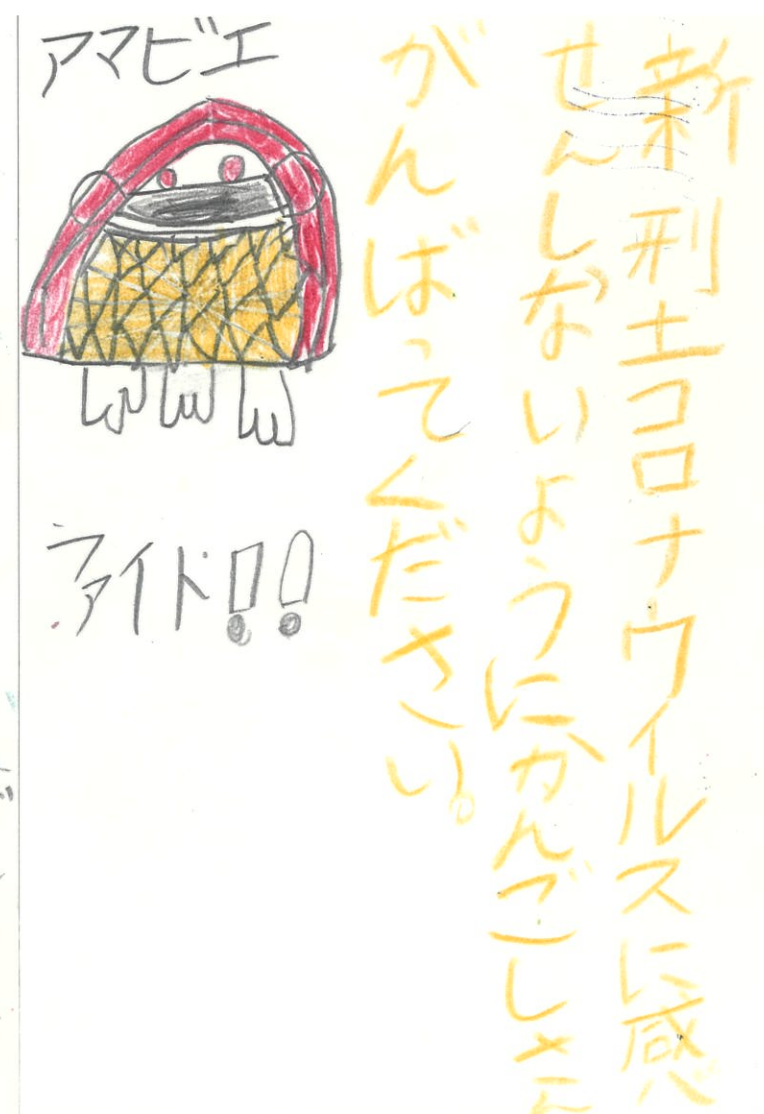 新型コロナウイルスに感
せんしないように、かんごしさん
がんばってください。
アマビエ
ファイト!!